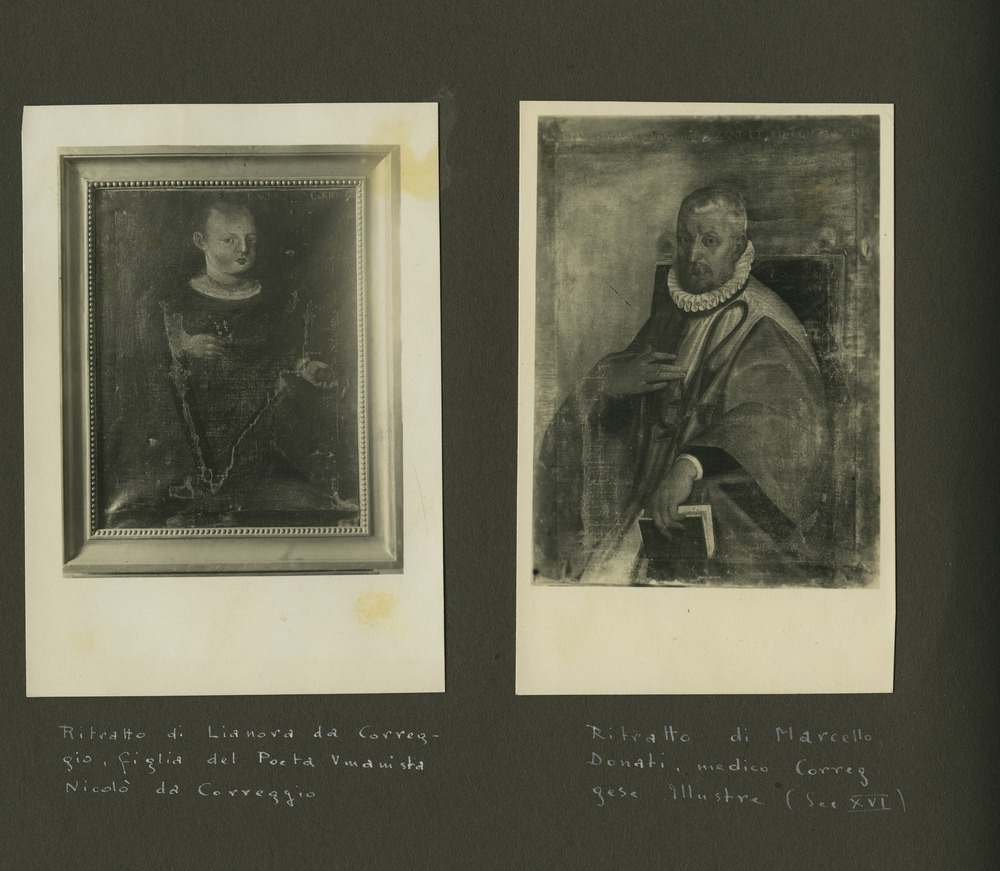 Ritratto di Lianora da Correg-
gio, figlia del Poeta Umanista
Nicolò da Correggio
Ritratto di Marcello
Donati, medico Correg
gese Illustre (Sec XVI)